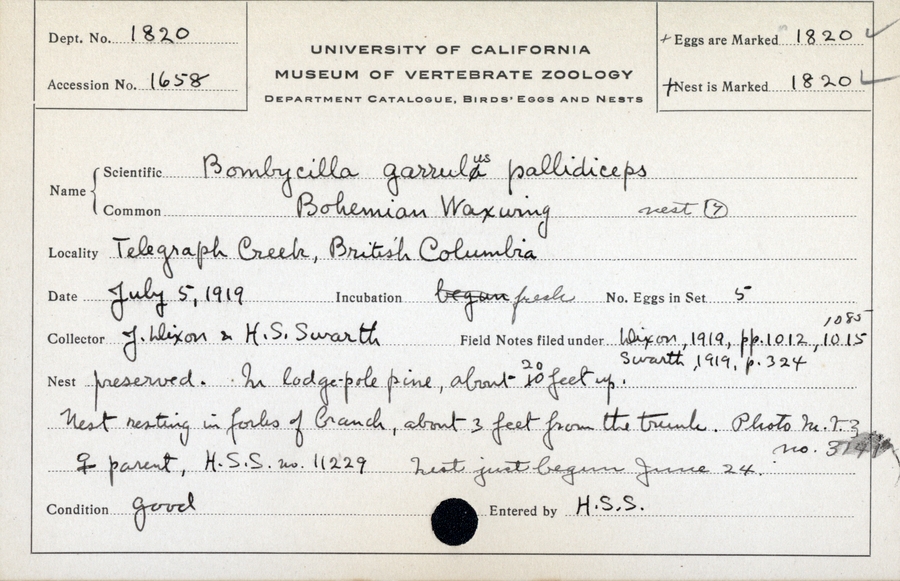 Dept. No. 1820
Accession No. 1658
UNIVERSITY OF CALIFORNIA
MUSEUM OF VERTEBRATE ZOOLOGY
DEPARTMENT CATALOGUE, BIRDS' EGGS AND NESTS
+ Eggs are Marked 1820 ✓
+ Nest is Marked 1820 ✓
Name
Scientific Bombycilla garrulus pallidiceps
Common Bohemian Waxwing nest 7
Locality Telegraph Creek, British Columbia
Date July 5, 1919 Incubation begun fresh No. Eggs in Set 5
Collector J. Dixon & H.S. Swarth Field Notes filed under Dixon, 1919, pp. 1012, 1015, 1085
Swarth, 1919, p. 324
Nest preserved. In lodge-pole pine, about 20 feet up.
Nest resting in forks of branch, about 3 feet from the trunk. Photo M.V.Z
no.
♀ parent, H.S.S. no. 11229 Nest just begun June 24.
Condition good Entered by H.S.S.